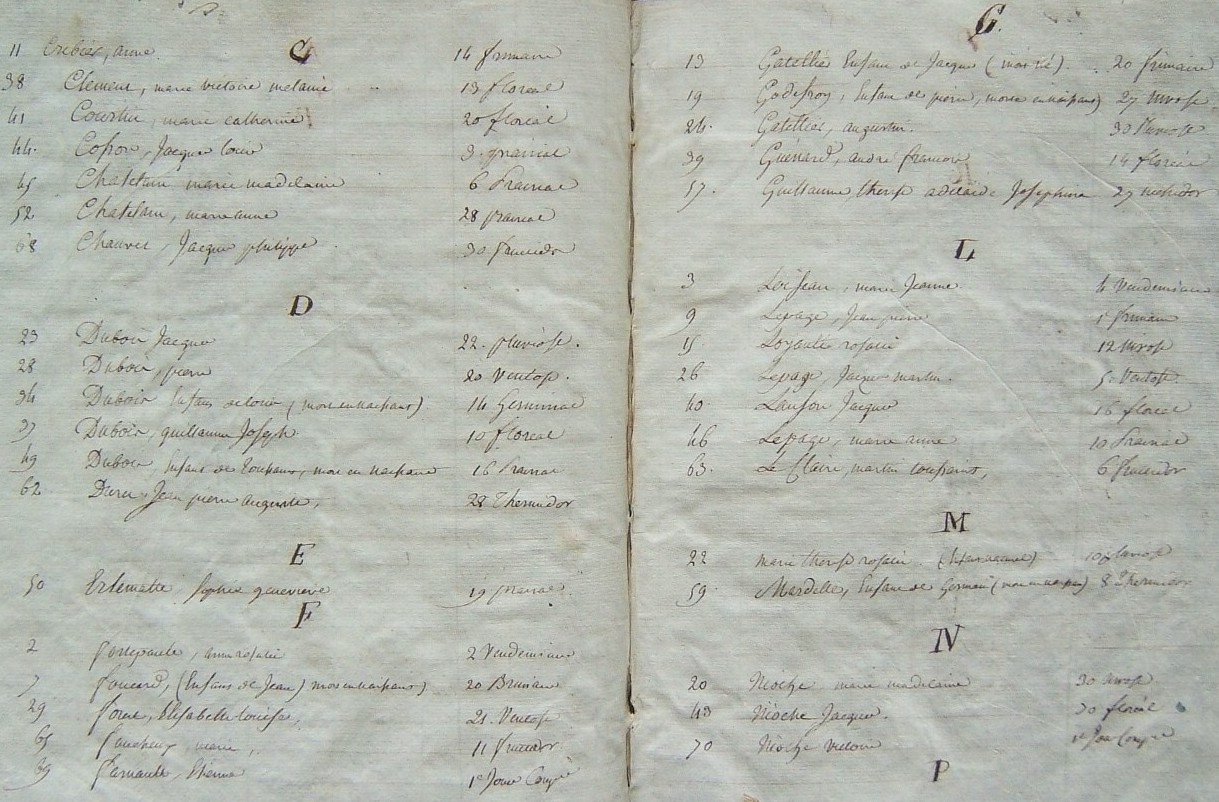 C
11 Crebier, anne. 14 frimaire
38 Clement, marie victoire melanie 13 floreal
41 Courtin, marie catherine 20 floreal
44. Jacques 3. prairial
45 Chatelain marie madelaine 6 Prairial
52 Chatelain, marie anne 28 prairial
68 Chauvet, Jacque philippe 30 fructidor
D
23 Dubois Jacques 22. pluviose.
28 Dubois, pierre 20 Ventose.
34 Dubois Enfant de louis (mort en naissant) 14 Germinal
37 Dubois, guillaume Joseph. 10 floreal
49 Dubois, Enfant de toussaint, mort en naissant 16 Prairial
62 Duru, Jean pierre auguste, 28 Thermidor
E
50 Erlematte Sophie genevieve 19 prairial.
F
2 anne rosalie 2 Vendemiaire
7 foucard, (Enfant de Jean) mort en naissant) 20 Brumaire
29 Elisabette louise, 21. Ventose
65 marie, 11 fructidor
69 farnault, Etienne 1er Jour Compre
G.
13 Gatellier Enfant de Jacque (mort né). 20 frimaire
19 Godefroy, Enfant de pierre, mort en naissant) 27 nivose
21. Gatellier, augustin. 30 Nivose
39 Guénard, andré francois 14 floréal
57. Guillaume, therese adelaide Josephine 27 messidor
L
3 Loiseau, marie Jeanne. 4 Vendemiaire
9 Lepage, Jean pierre 1er frimaire
15 Loyauté rosalie 12 nivose
26 Lepage, Jacque martin. 5. Ventose.
40 Lanson Jacques 16 floreal
46 Lepage, marie anne 10 Prairial
63. Le Claire, martin toussaint, 6 fructidor
M
22 marie therese rosalie. 10 pluviose
59. Mardelle, Enfant de Germain (mort en naissant) 8 Thermidor
N
20 Nioche marie madelaine 30 nivose
43 Nioche Jacques. 30 floréal
70 Nioche victoire 1er Jour Compre
P